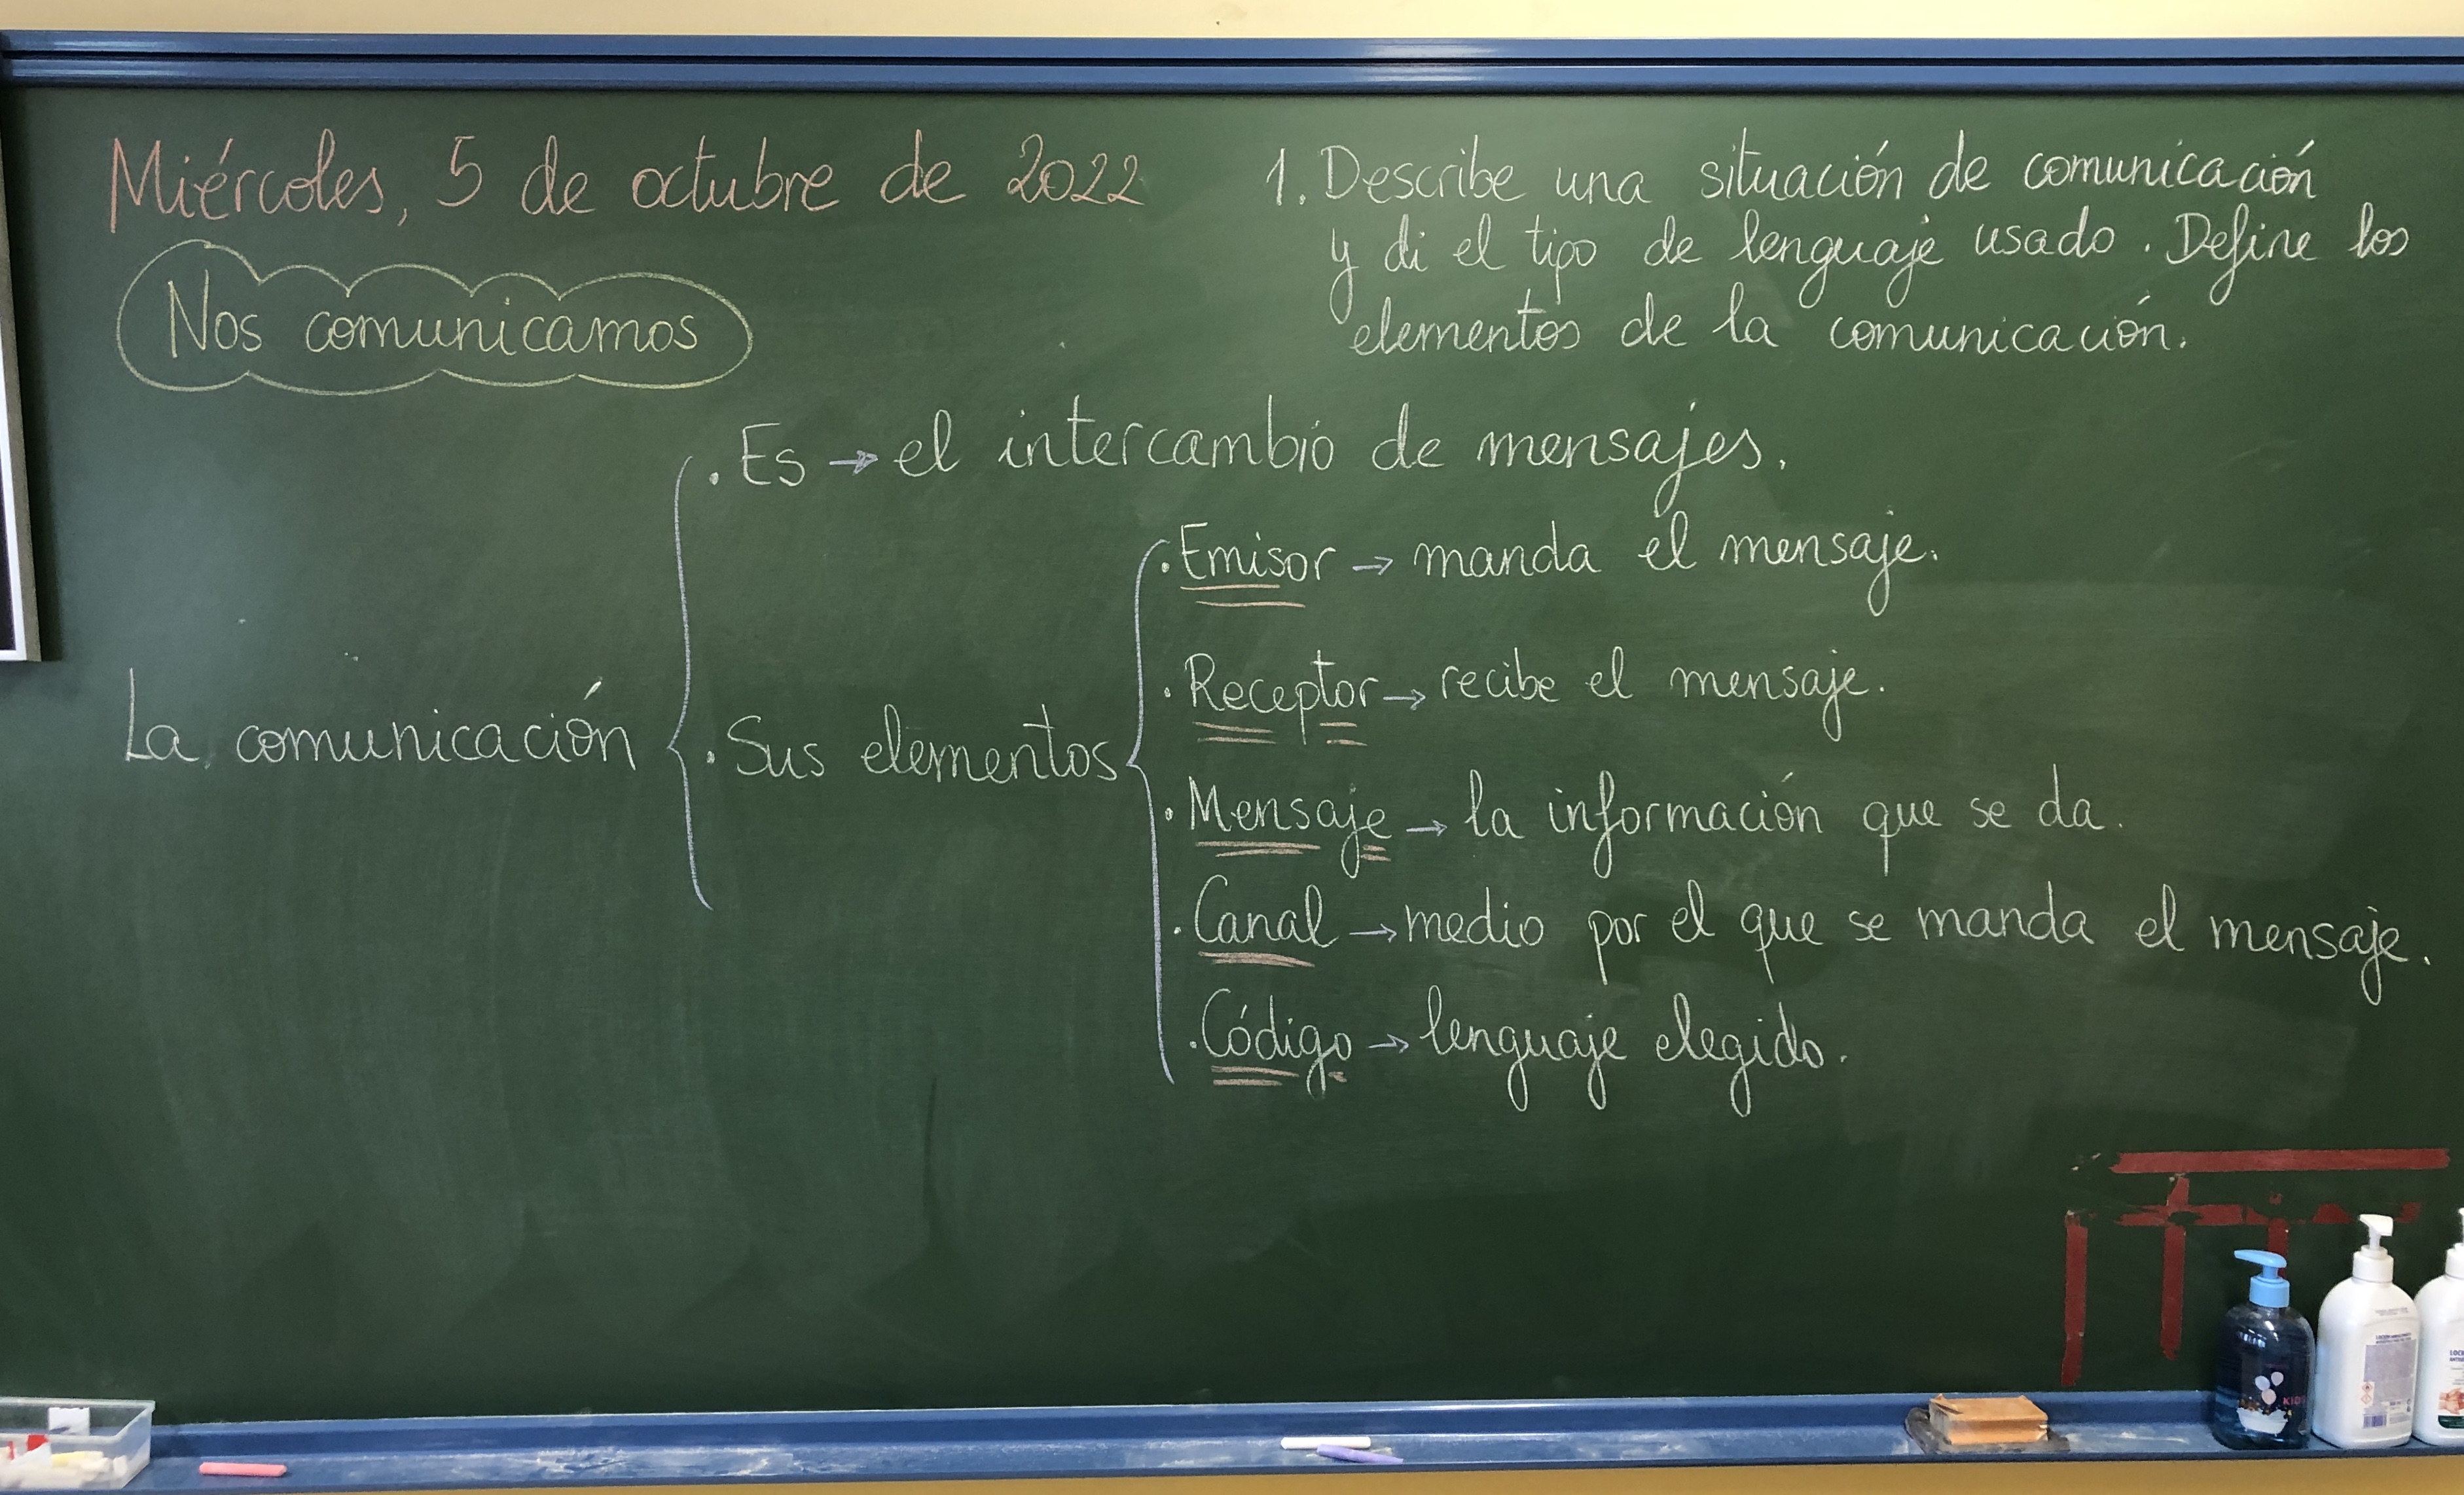 Miércoles, 5 de octubre de 2022
Nos comunicamos
1. Describe una situación de comunicación
y di el tipo de lenguaje usado. Define los
elementos de la comunicación.
La comunicación
. Es → el intercambio de mensajes.
. Sus elementos
. Emisor → manda el mensaje.
. Receptor → recibe el mensaje.
. Mensaje → la información que se da.
. Canal → medio por el que se manda el mensaje.
. Código → lenguaje elegido.